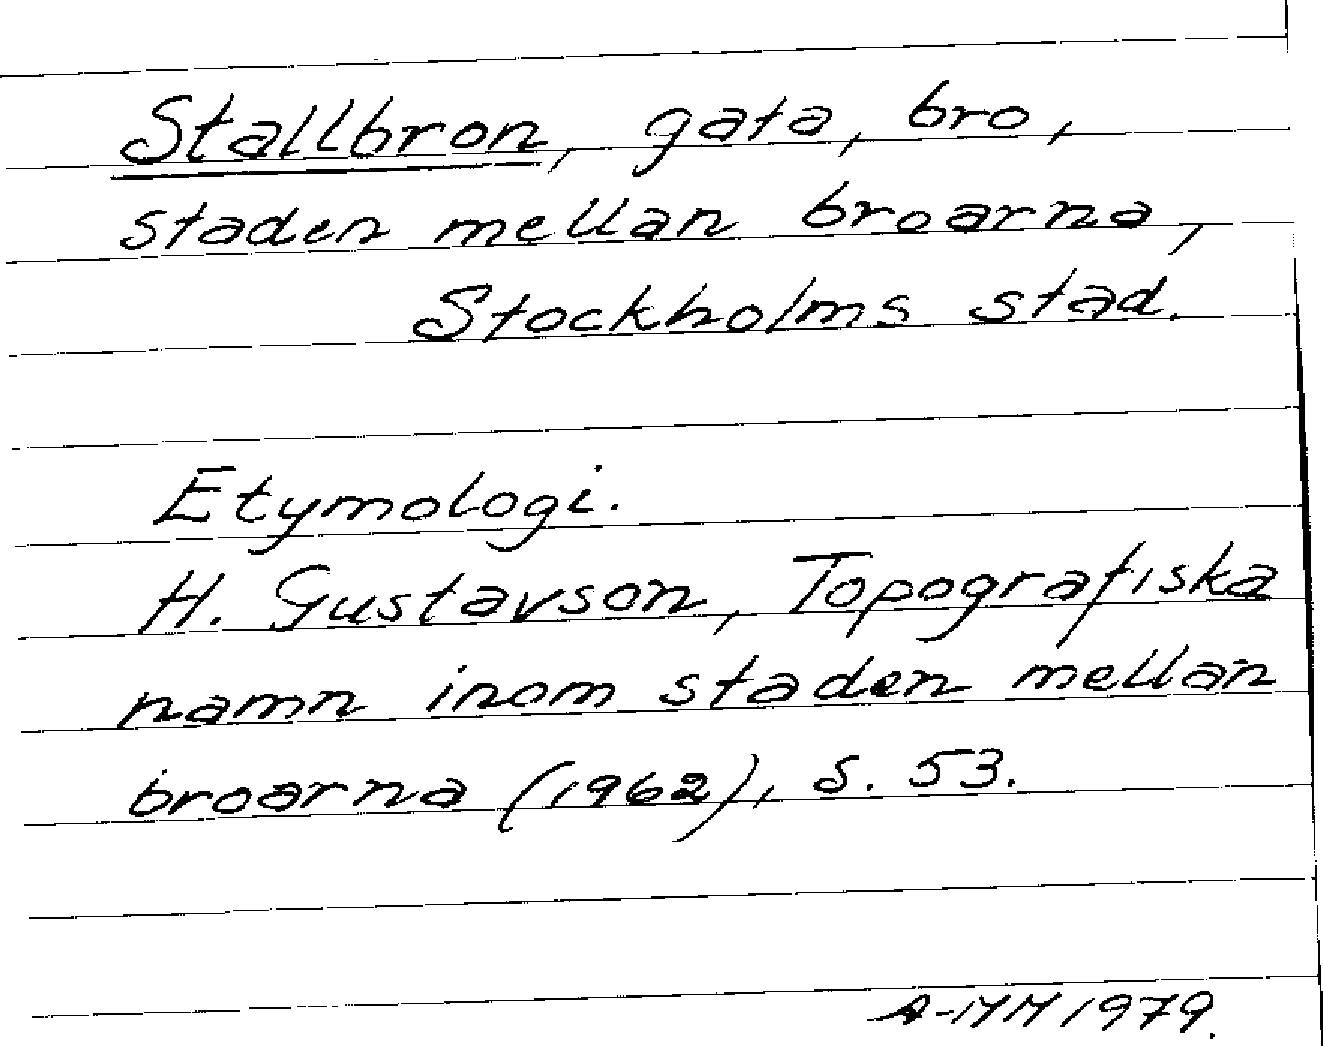 Stallbron, gata, bro,
staden mellan broarna,
Stockholms stad.
Etymologi.
H. Gustavson, Topografiska
namn inom staden mellan
broarna (1962), s. 53.
A-MM 1979.